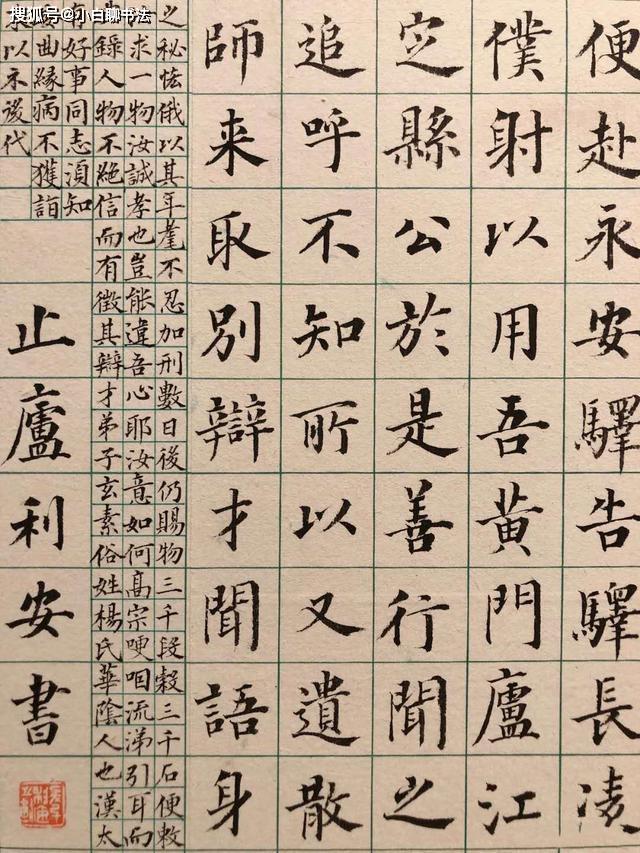 搜狐号@小白聊书法
便赴永安驛告驛長凌
僕射以用吾黃門廬江
定縣公於是善行聞之
追呼不知所以又遺散
師来取別辯才聞語身
之秘恡俄以其年耄不忍加刑數日後仍賜物三千段穀三千石便敕
求一物汝誠孝也豈能違吾心耶汝意如何高宗哽咽流涕引耳而
録人物不絶信而有徵其辯才弟子玄素俗姓楊氏華陰人也漢太
有好事同志須知
曲緣病不獲詣
以示後代
止廬利安書